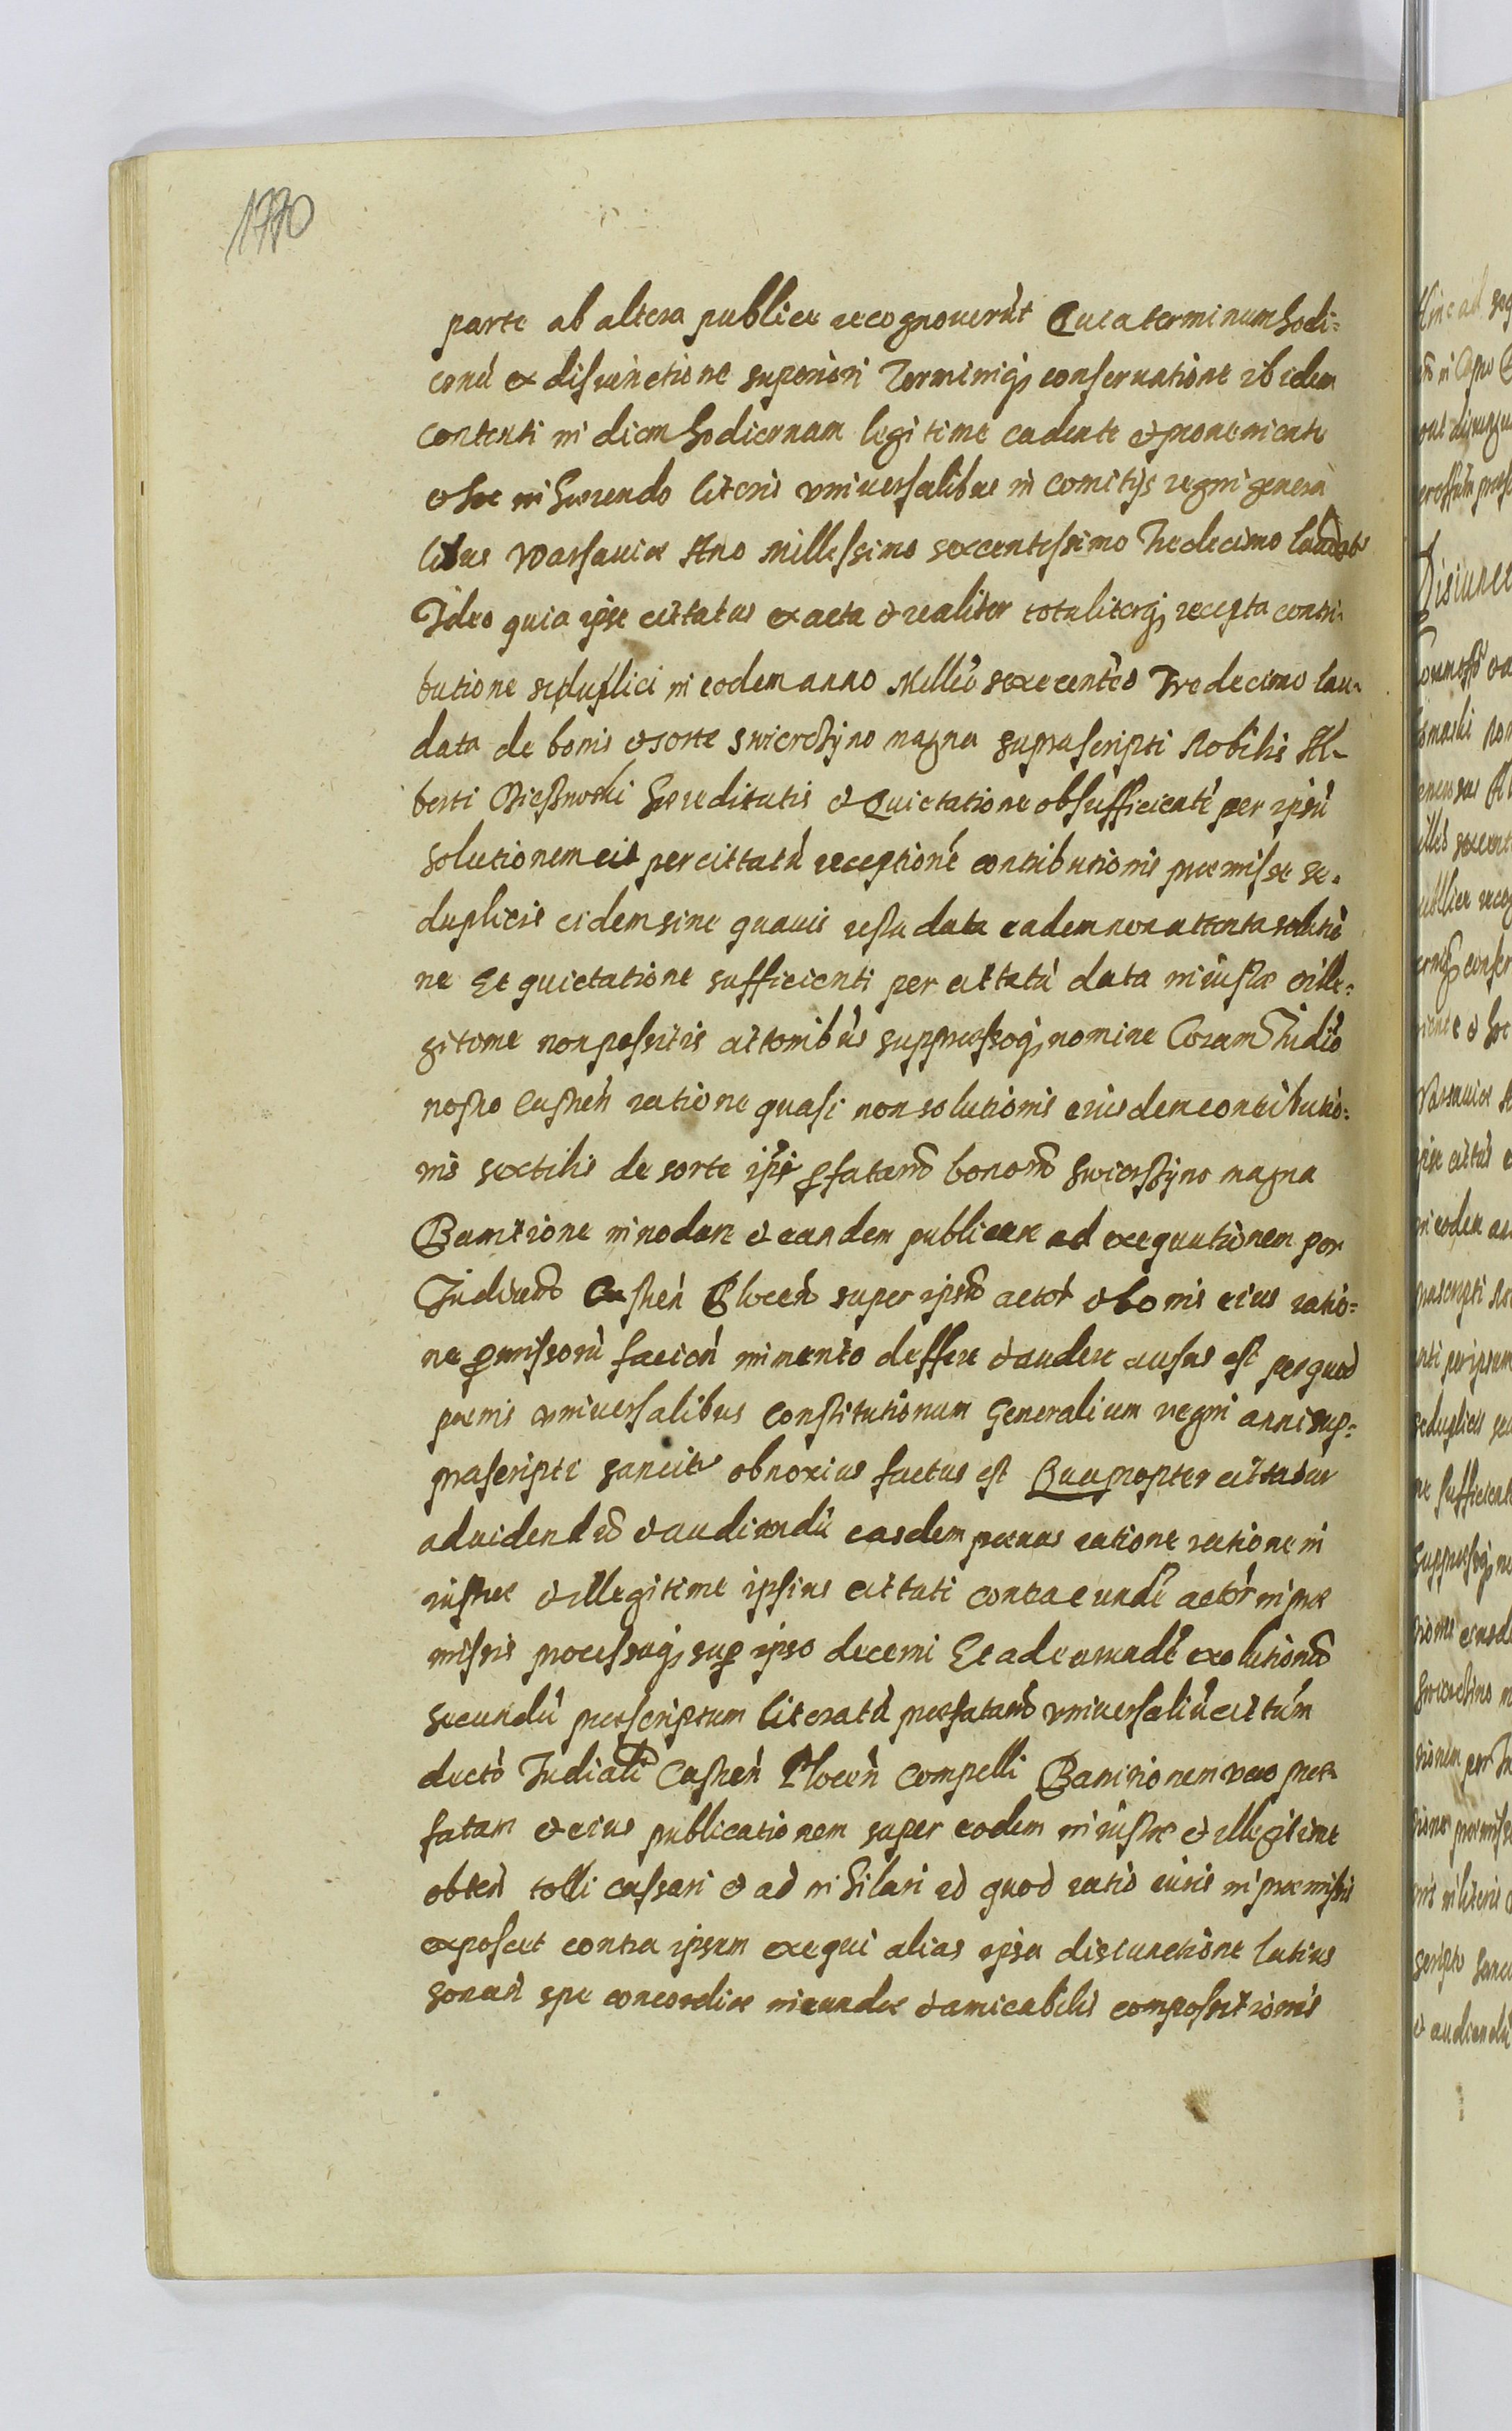 1770
parte ab altera publice recognoverut Quia terminum hodi-
ernu ex disiunctione superiori Terminiq conservatione ibidem
contenti in diem hodiernam legitime cadente et proveniente
et hoc inhaerendo literis universalibus in Comitijs regni genera
libus Warsauiae Ano Millessimo sexcentessimo Tredecimo laudatis
Ideo quia ipse cittatus exacta et realiter totaliterq recepta contri-
butione seduplici in eodem anno Milleo sexcenteo Tredecimo lau-
data de bonis et sorte Swierczyno magna suprascripti Nobilis Al-
berti haereditatis et Quietatione ob sufficiente per ipsu
solutionem eit per cittatu receptione contributionis praemissae se-
duplicis eidem sine quauis resta data eadem non attenta solutio
ne Et quietatione sufficienti per cittatu data iniuste et ille-
gitome non possitis attoribus supprassoq nomine Coram Iudio
nostro Castren ratione quasi non solutionis eiusdem contributio-
nis sextilis de sorte ipsi pfataru bonoru Swierczyno magna
Banitione innodare et eandem publicare ad exequutionem per
Iudicium Castren Plocen super ipso actor et bonis eius ratio-
ne pmissoru facien in mento deffere et audere ausus est per quod
paenis universalibus Constitutionum Generalium regni anni sup-
prascripti sancitis obnoxius factus est Quapropter cittatur
ad uidendu et audiendu easdem paenas ratione ratione in
iustae et illegitime ipsius cittati contra eunde actor in prae
missis processuq sup ipso decerni Et ad eamde exolutione
secundu praescriptum literatu praefataru universaliu cittum
ducto Iudiali Castren Plocen compelli Banitionem vero prae-
fatam et eius publicationem super eodem iniustae et illegitime
obten tolli cassari et adnihilari id quod ratio iuris in praemissis
exposcet contra ipsum exequi alias ipsa disiunctione latius
sonan spe concordiae ineundae et amicabilis compossitionis